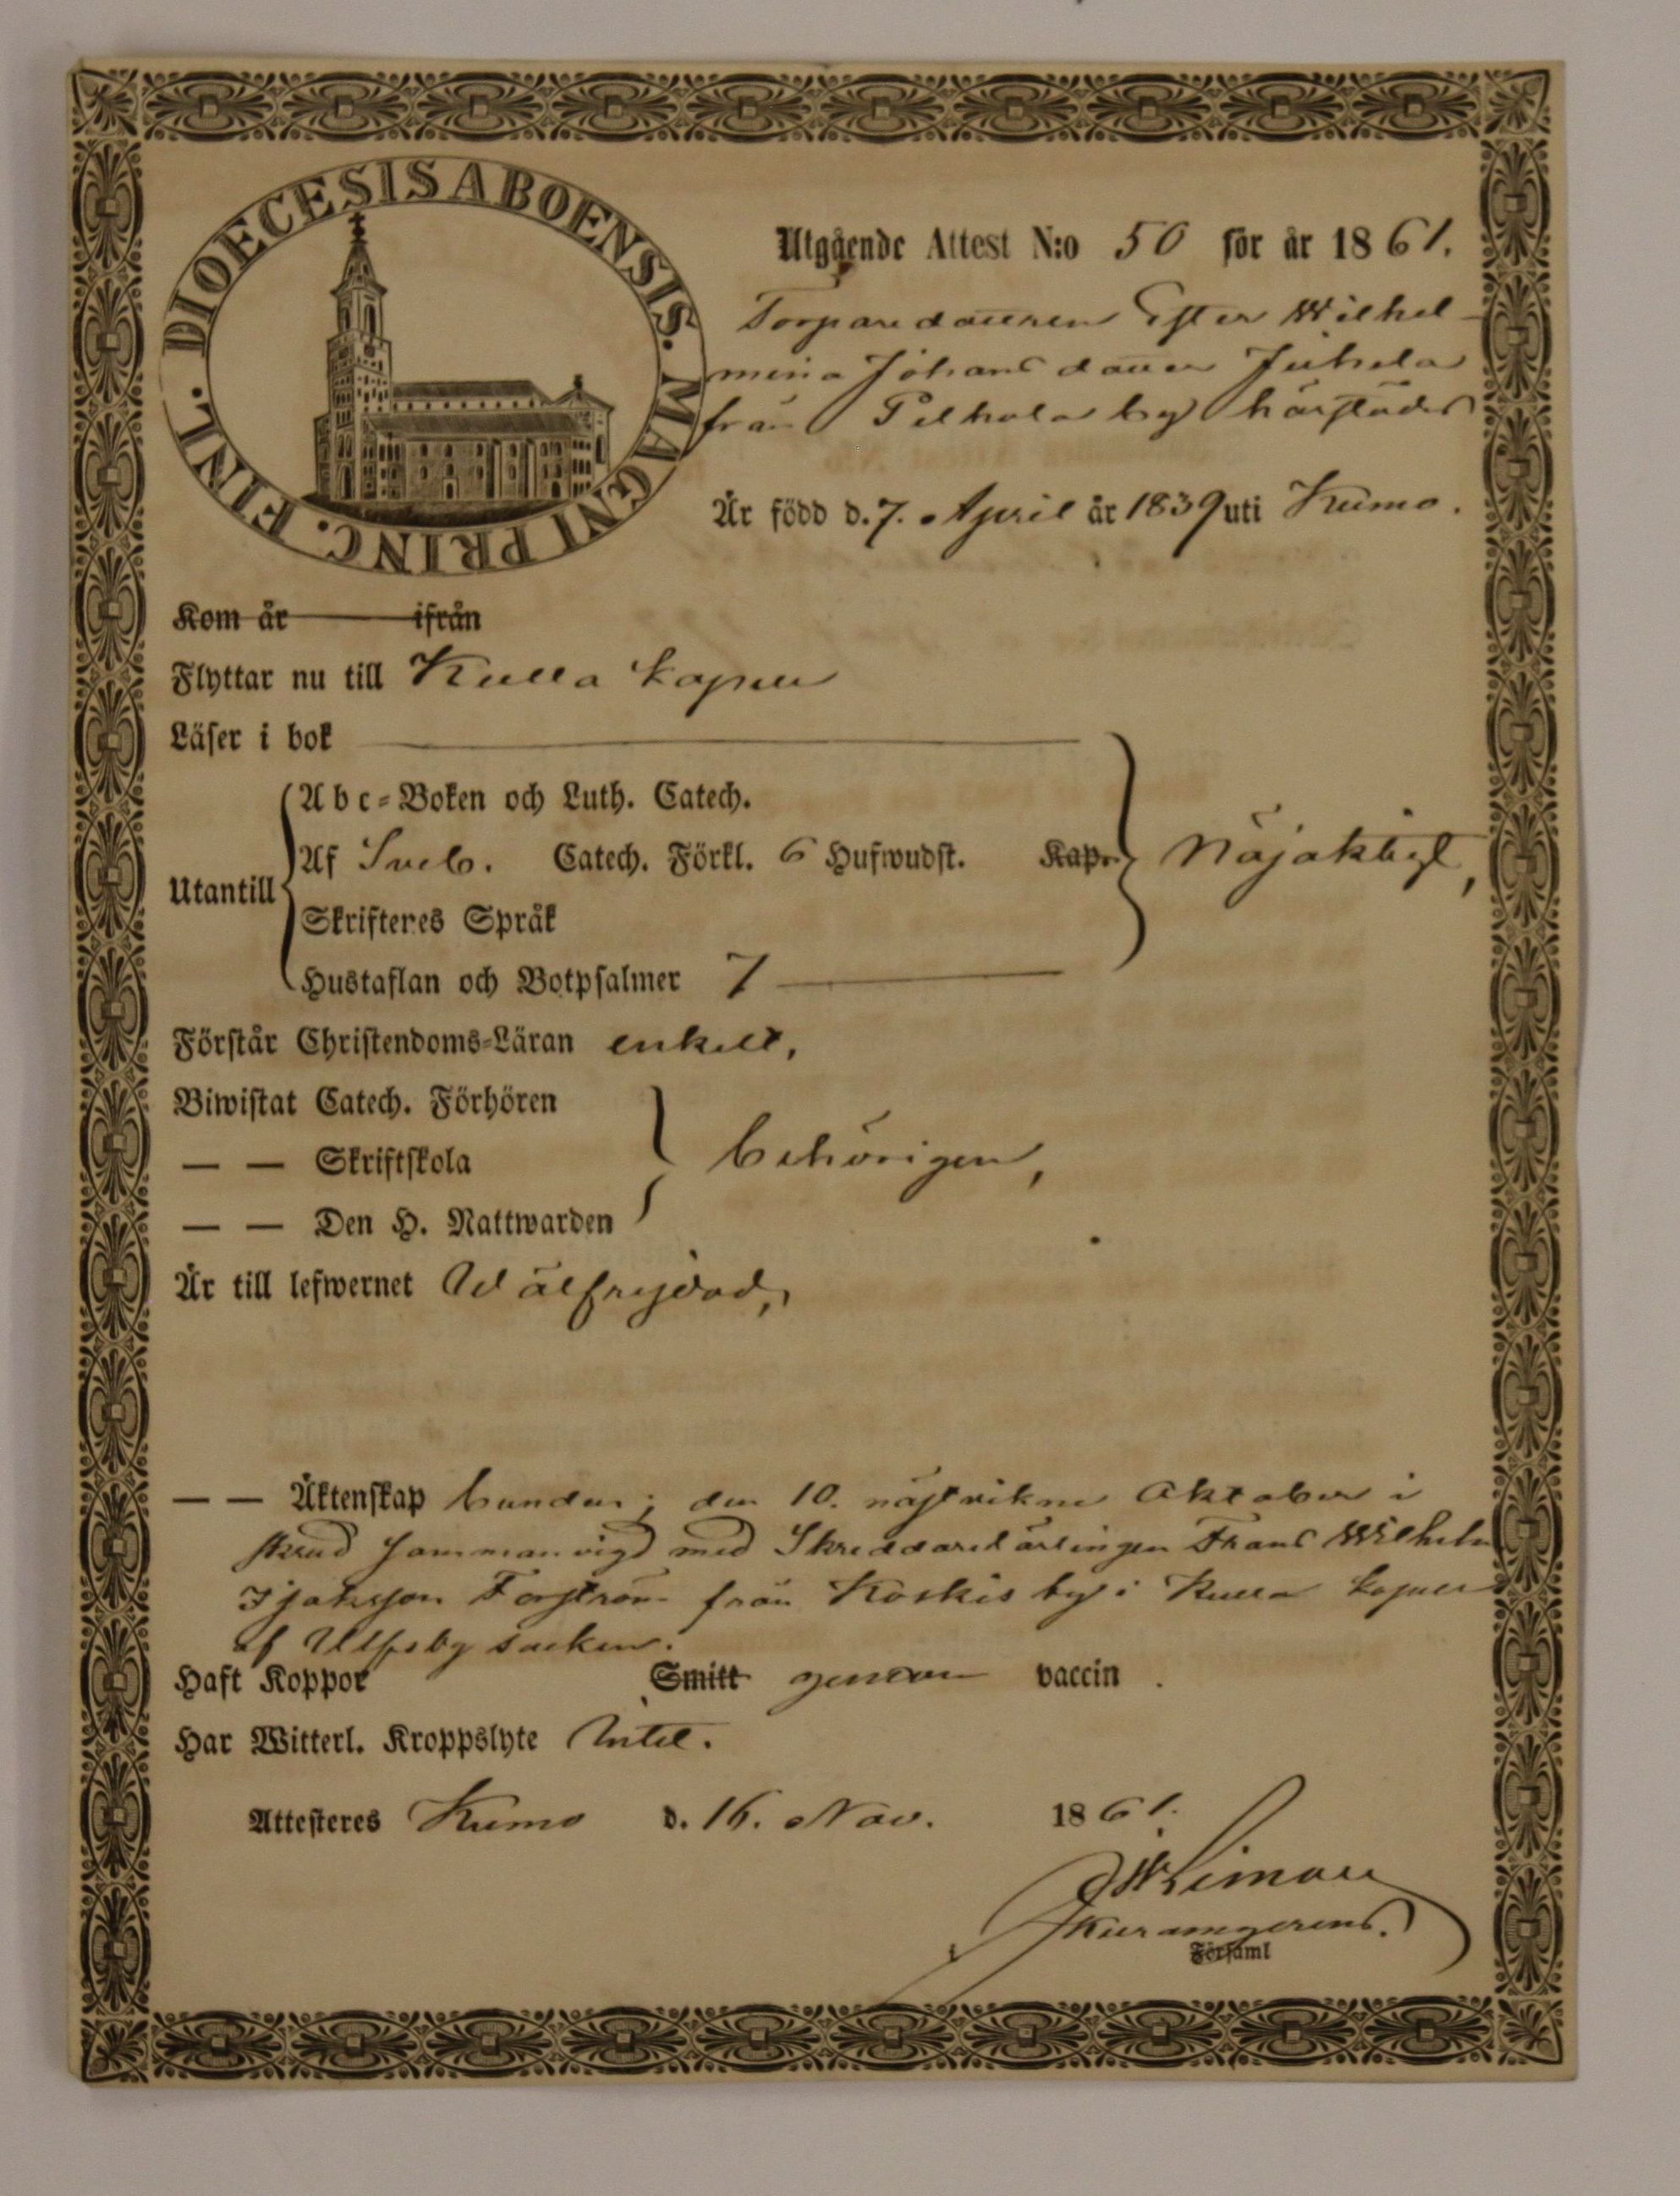 DIOECESIS ABOENSIS. MAGNI PRINC. FINL.
Utgående Attest N:o 50 för år 1861.
Torparedottren Ester Wilhel-
mina Johansdotter Juhela
från Pelhola by härstädes
Är född d. 7. April år 1839 uti Kumo.
Kom år ifrån
Flyttar nu till Kulla kapell
Läser i bok
Abc-Boken och Luth. Catech.
Af Sveb. Catech. Förkl. 6 Hufwudst. Kap. Nöjaktigt,
Utantill
Skriftenes Språk
Hustaflan och Botpsalmer 7
Förstår Christendoms-Läran enkelt,
Biwistat Catech. Förhören
— — Skriftskola behörigen,
— — Den H. Nattwarden
Är till lefwernet Wälfrejdad,
— — Äktenskap bunden; den 10. nästvikne Oktober i
skrud sammanvigd med Skreddarelärlingen Frans Wilhelm
Isaksson Forström från Koskis by i Kulla kapell
af Ulfsby socken.
Haft Koppor Smitt genom vaccin.
Har Witterl. Kroppslyte Intet.
Attesteres Kumo d. 16. Nov. 1861.
Kuramgerens.
Församl